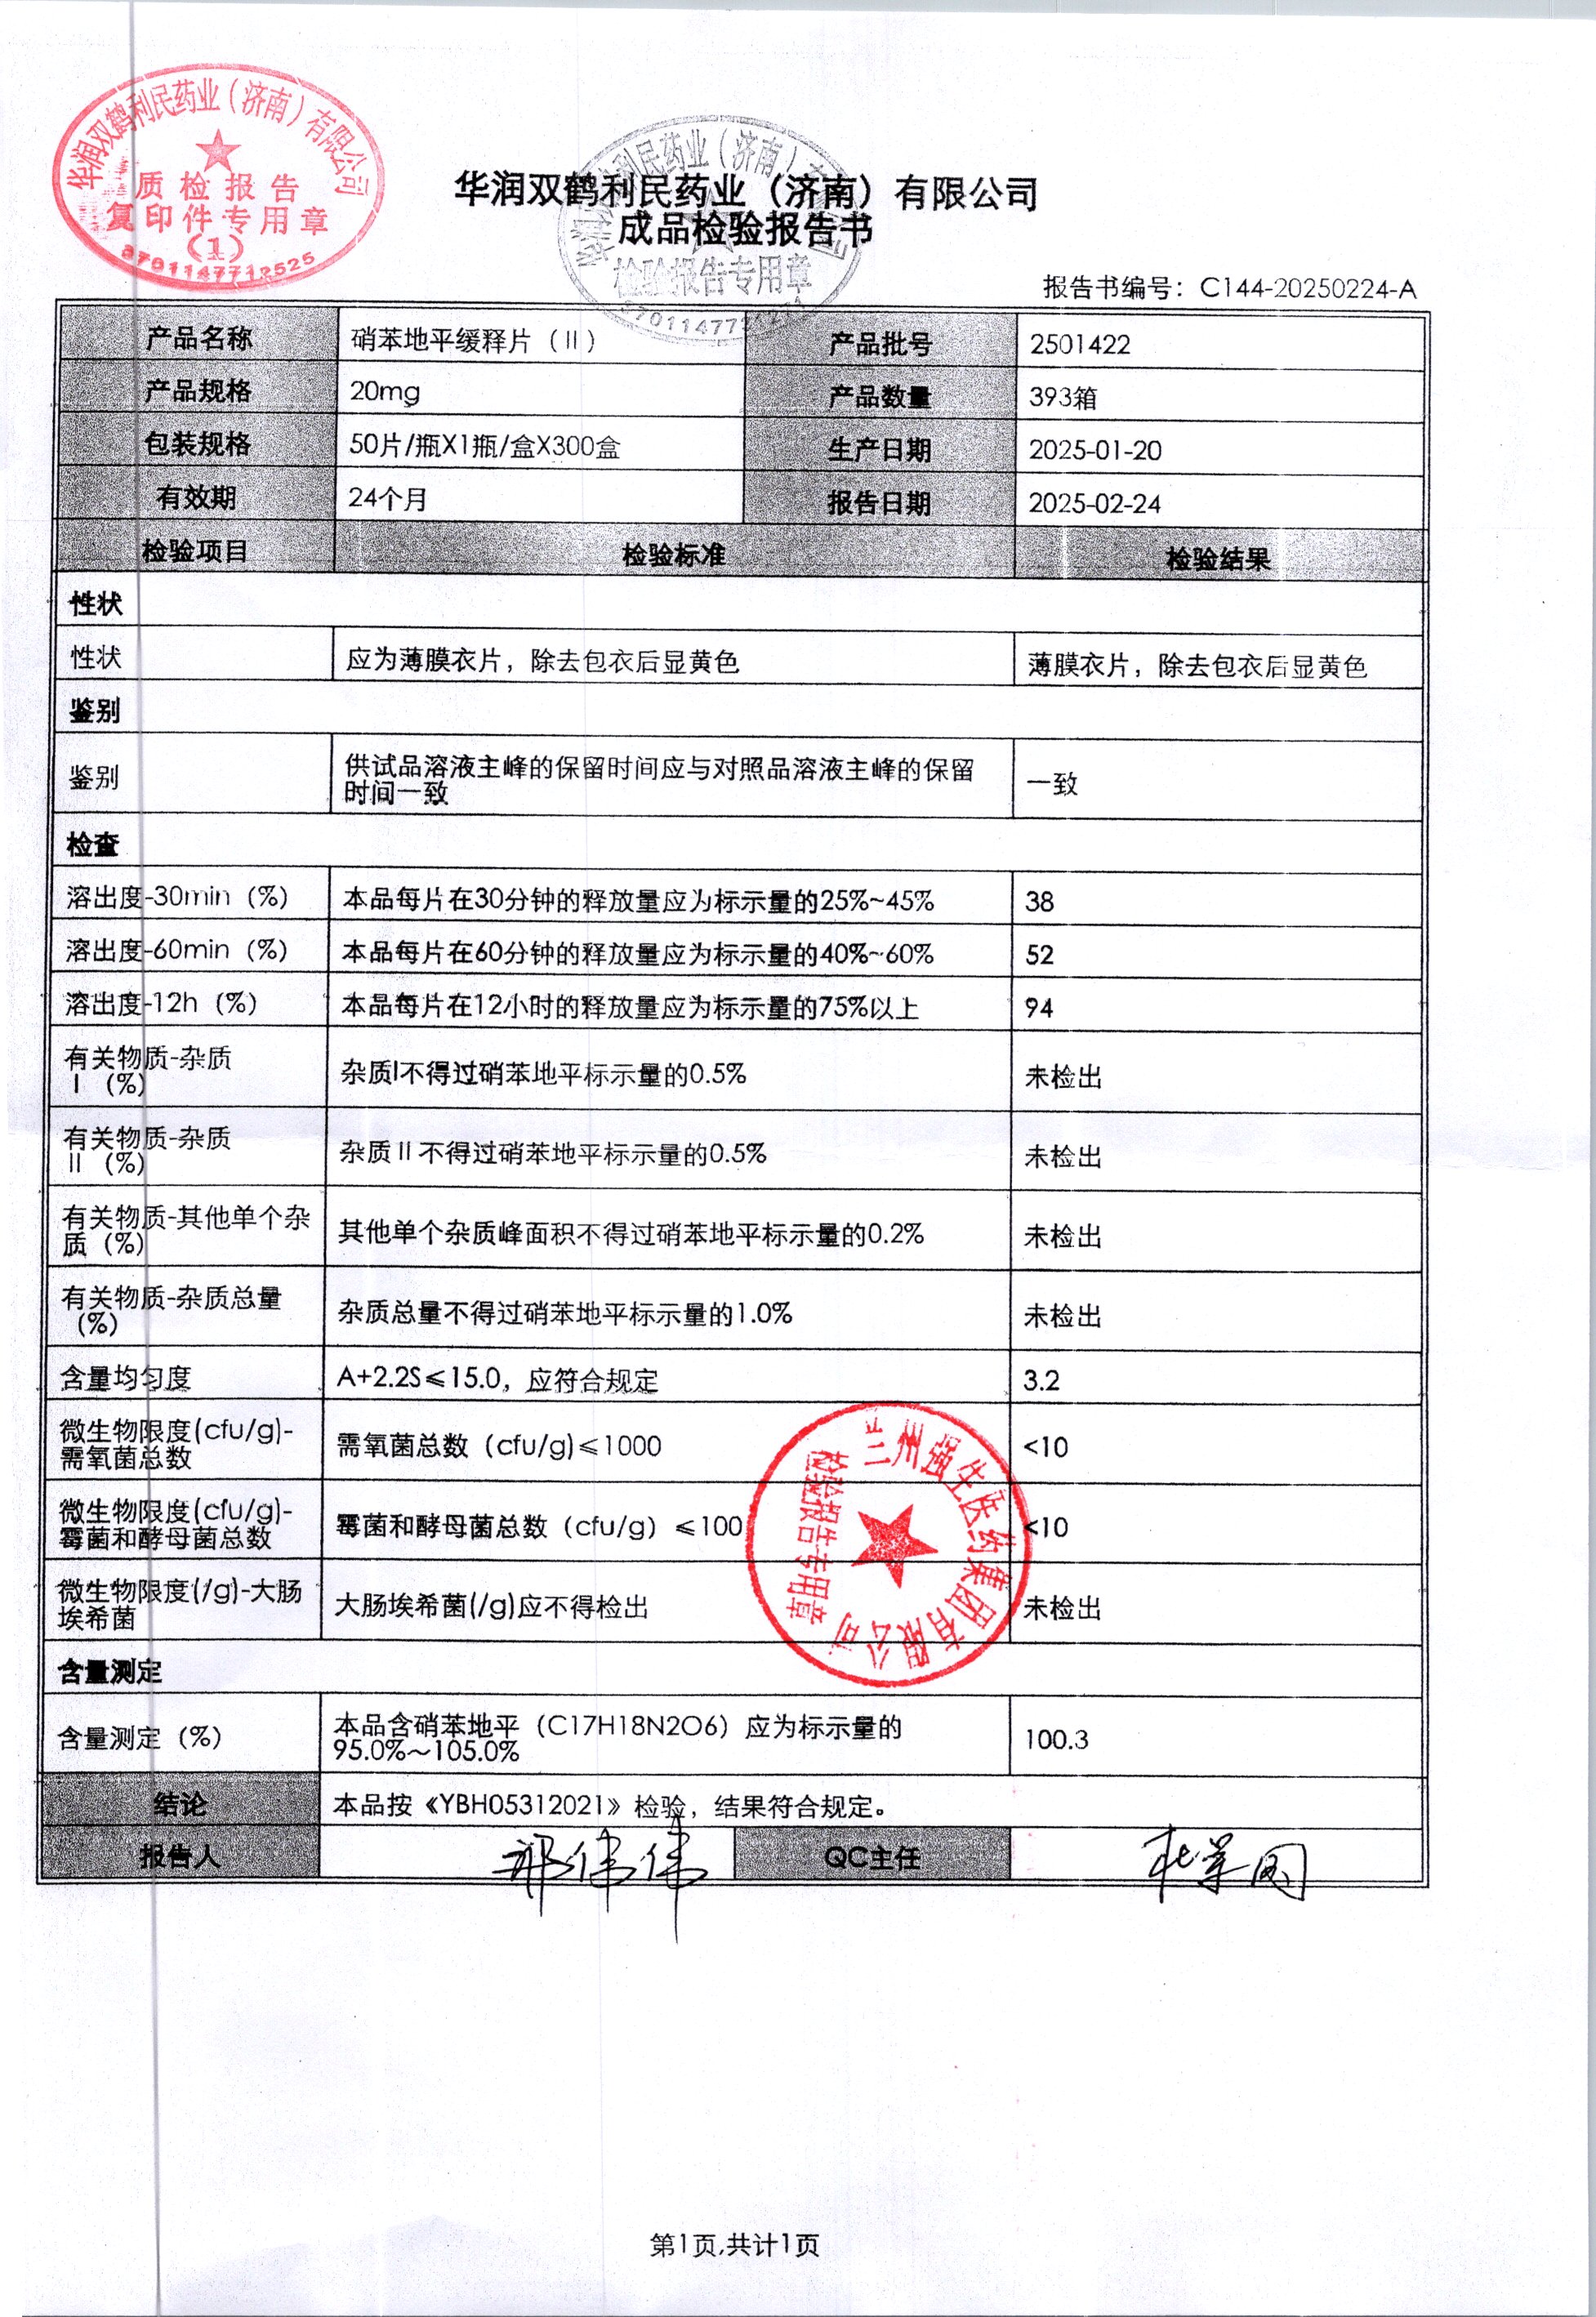 华润双鹤利民药业（济南）有限公司
质检报告
复印件专用章
（1）
3701147712525
华润双鹤利民药业（济南）有限公司
成品检验报告书
检验报告专用章
报告书编号：C144-20250224-A
产品名称 硝苯地平缓释片（II） 产品批号 2501422
产品规格 20mg 产品数量 393箱
包装规格 50片/瓶X1瓶/盒X300盒 生产日期 2025-01-20
有效期 24个月 报告日期 2025-02-24
检验项目 检验标准 检验结果
性状
性状 应为薄膜衣片，除去包衣后显黄色 薄膜衣片，除去包衣后显黄色
鉴别
鉴别 供试品溶液主峰的保留时间应与对照品溶液主峰的保留
时间一致 一致
检查
溶出度-30min（%） 本品每片在30分钟的释放量应为标示量的25%~45% 38
溶出度-60min（%） 本品每片在60分钟的释放量应为标示量的40%~60% 52
溶出度-12h（%） 本品每片在12小时的释放量应为标示量的75%以上 94
有关物质-杂质
I（%） 杂质I不得过硝苯地平标示量的0.5% 未检出
有关物质-杂质
II（%） 杂质II不得过硝苯地平标示量的0.5% 未检出
有关物质-其他单个杂
质（%） 其他单个杂质峰面积不得过硝苯地平标示量的0.2% 未检出
有关物质-杂质总量
（%） 杂质总量不得过硝苯地平标示量的1.0% 未检出
含量均匀度 A+2.2S≤15.0，应符合规定 3.2
微生物限度(cfu/g)-
需氧菌总数 需氧菌总数（cfu/g)≤1000 <10
微生物限度(cfu/g)-
霉菌和酵母菌总数 霉菌和酵母菌总数（cfu/g）≤100 <10
微生物限度(/g)-大肠
埃希菌 大肠埃希菌(/g)应不得检出 未检出
兰州强生医药集团有限公司
检验报告专用章
含量测定
含量测定（%） 本品含硝苯地平（C17H18N2O6）应为标示量的
95.0%～105.0% 100.3
结论 本品按《YBH05312021》检验，结果符合规定。
报告人 QC主任
第1页,共计1页